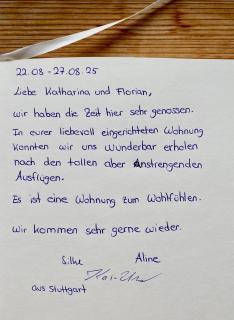 22.08 - 27.08.25
Liebe Katharina und Florian,
wir haben die Zeit hier sehr genossen.
In eurer liebevoll eingerichteten Wohnung
konnten wir uns wunderbar erholen
nach den tollen aber Anstrengenden
Ausflügen.
Es ist eine Wohnung zum Wohlfühlen.
Wir kommen sehr gerne wieder.
Silke Aline
aus Stuttgart